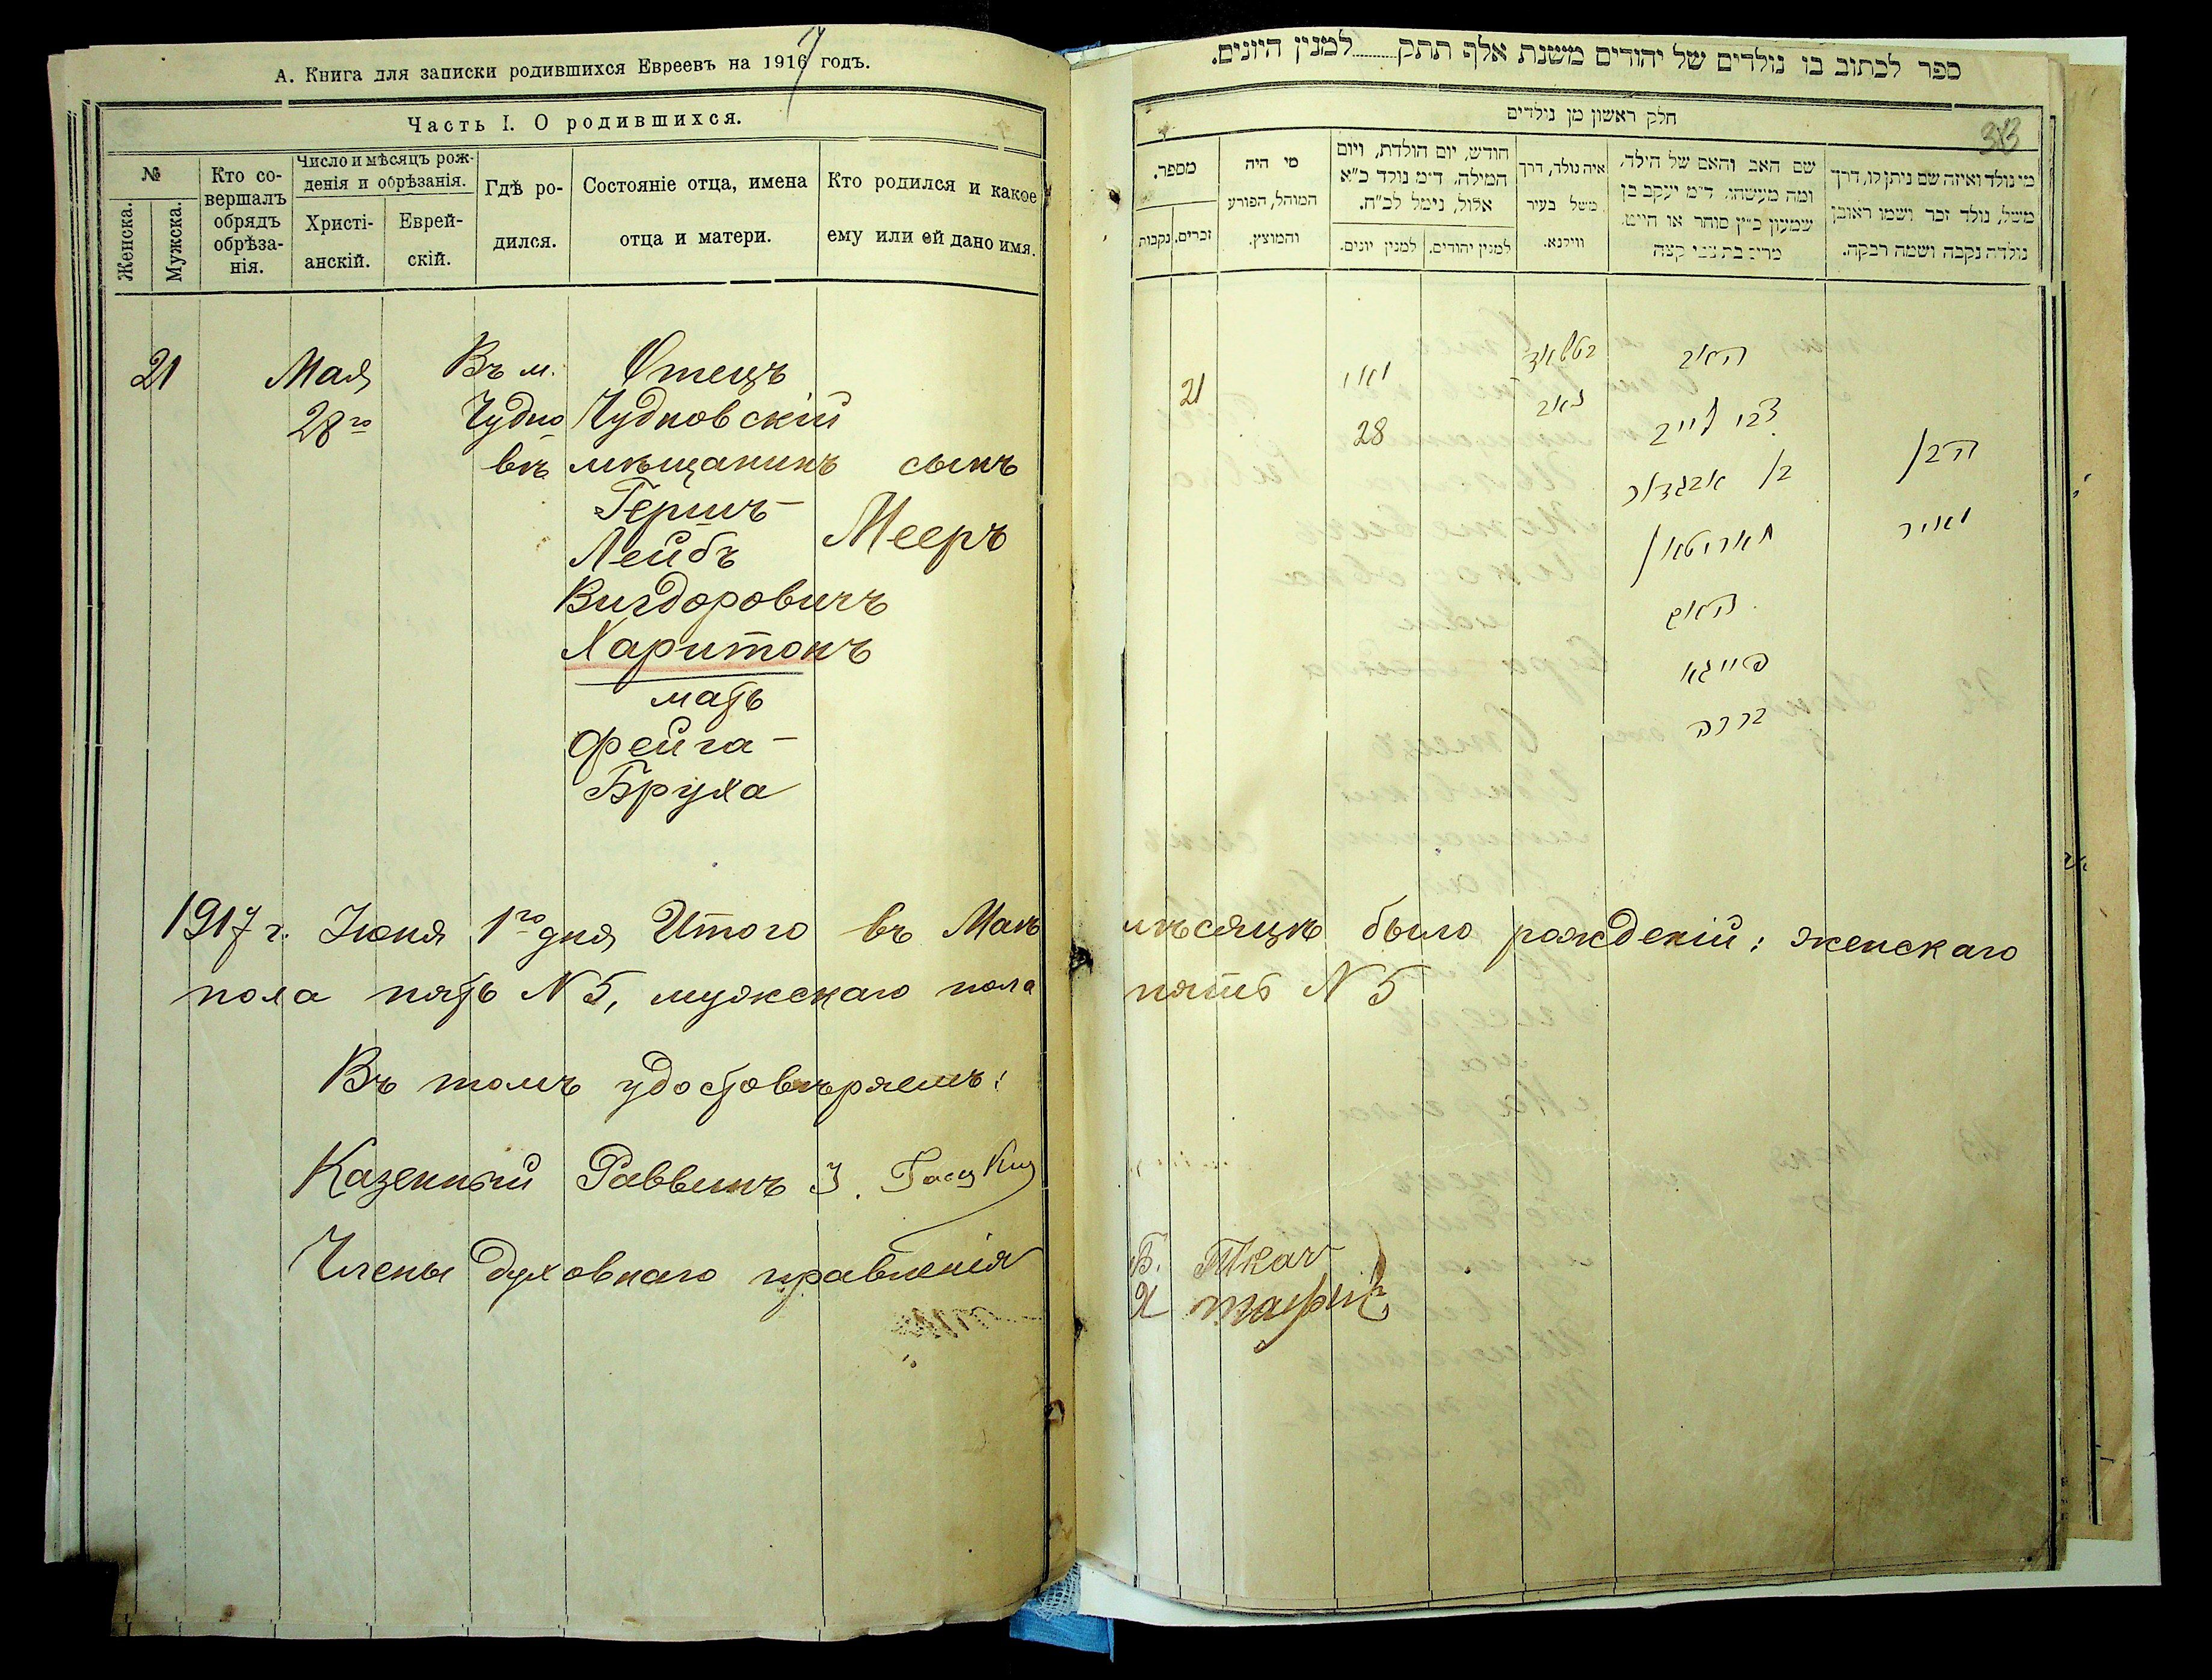 А. Книга для записки родившихся Евреевъ на 1917 годъ.
Часть I. О родившихся.
№
Женска.
Мужска.
Кто со-
вершалъ
обрядъ
обрѣза-
нія.
Число и мѣсяцъ рож-
денія и обрѣзанія.
Христі-
анскій.
Еврей-
скій.
Гдѣ ро-
дился.
Состояніе отца, имена
отца и матери.
Кто родился и какое
ему или ей дано имя.
21
Мая
28го
Въ м.
Чудно
вѣ
Отецъ
Чудновскій
мѣщанинъ
Гершъ-
Лейбъ
Вигдоровичъ
Харитонъ
мать
Фейга-
Бруха
сынъ
Мееръ
1917 г. Іюня 1го дня Итого въ Маѣ мѣсяцѣ было рожденій: женскаго
пола пять N 5, мужскаго пола пять N 5
Въ томъ удостовѣряемъ:
Казенный Раввинъ
Члены духовнаго правленія
Б. Ткач
ספר לכתוב בו נולדים של יהודים משנת אלף תתק למנין היונים.
חלק ראשון מן נולדים
313
מספר.
נקבות.
זכרים.
מי היה
המוהל, הפורע
והמוצץ.
חודש, יום הולדת, ויום
המילה, ד״מ נולד כ״א
אלול, נימל לכ״ח.
למנין יונים.
למנין יהודים.
איה נולד, דרך
משל בעיר
ווילנא.
שם האב והאם של הילד,
ומה מעשהו, ד״מ יעקב בן
שמעון כ״ץ סוחר או חייט.
מרים בת צבי קצה
מי נולד ואיזה שם ניתן לו, דרך
משל, נולד זכר ושמו ראובן
נולדה נקבה ושמה רבקה.
21
מאי
28
האב
צבי לייב
בן אביגדור
חאריטאן
האם
פייגא
ברכה
הבן
מאיר